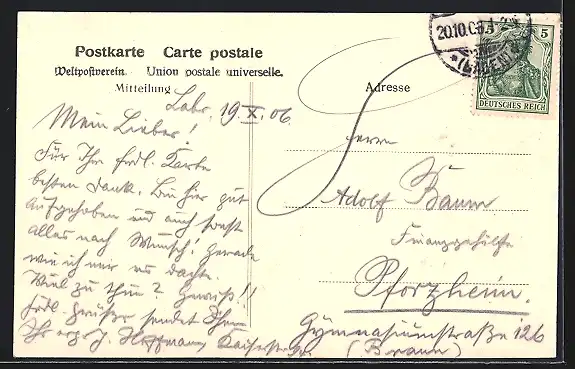 Postkarte Carte postale
Weltpostverein. Union postale universelle.
Mitteilung
Adresse
20.10.06.
*(BADEN)
5
DEUTSCHES REICH
Lahr, 19 X. 06.
Mein Lieber!
Für Ihre frdl. Karte
besten Dank. Bin hier gut
aufgehoben und auch sonst
alles nach Wunsch! Gerade
wie ich mir es dachte.
Viel zu thun? Gewiß!!
Frdl. Grüße sendet Ihnen
Ihr erg. J. Hoffmann, Kaiserstr.
Herrn
Adolf Baum
Finanzgehülfe
Pforzheim.
Gymnasiumstraße 126
(Braun)